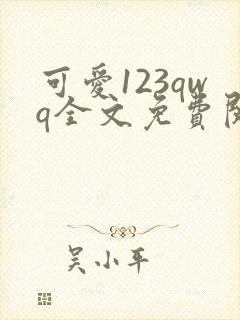 可愛123qw
q全文免費閱
吴小平